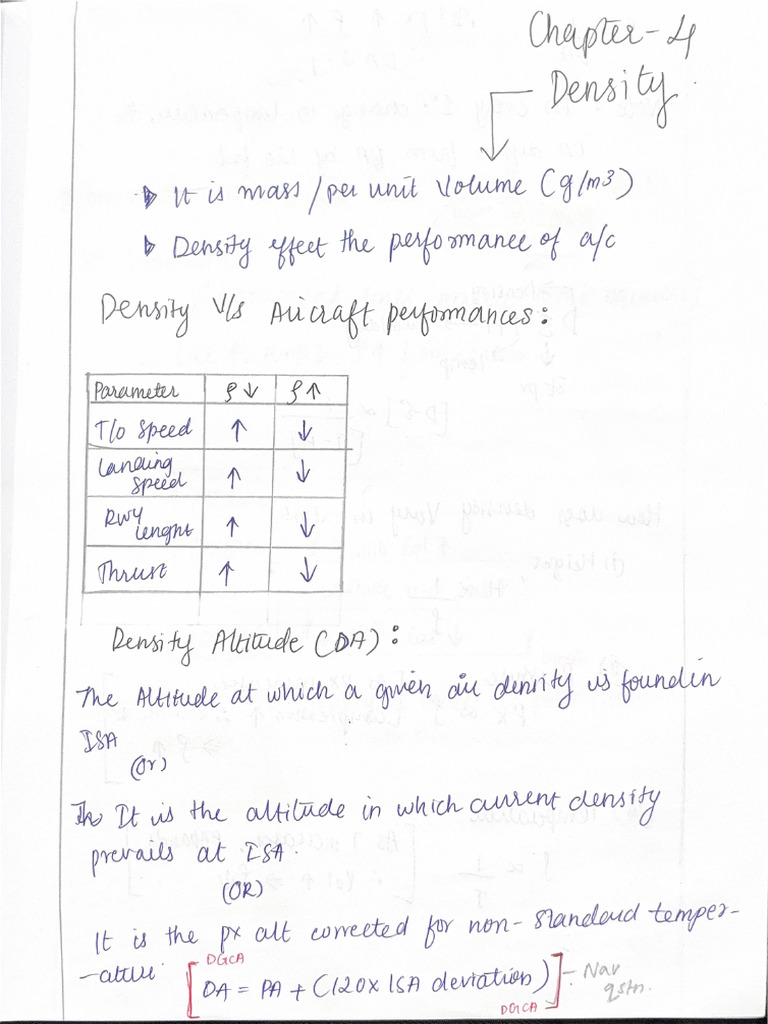 Chapter-4
Density
It is mass/per unit volume (g/m3)
Density effect the performance of a/c
Density V/s Aircraft performances:
Parameter ρ↓ ρ↑
T/o Speed ↑ ↓
Landing Speed ↑ ↓
Rwy lenght ↑ ↓
Thrust ↑ ↓
Density Altitude (DA):
The Altitude at which a given air density is found in
ISA
(Or)
It is the altitude in which current density
prevails at ISA.
(OR)
It is the px alt corrected for non-standard temper-
-ature. DGCA
[DA = PA + (120x ISA deviation)] - Nav
qstn.
DGCA